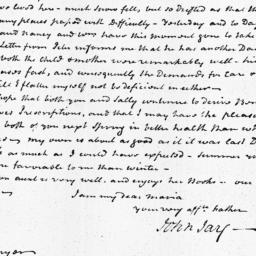 two weeks here – much snow fell, but so drifted as that the
many places passed with difficulty – Yesterday and to Day
and Nancy and was have this moment gone to take
Letter from Peter informs me that he has another Dau
both the child & mother were remarkably well – his
Cares fast, and consequently the Demands for care &
will I flatter myself not be deficient in either –
hope that both you and Sally continue to derive Ben
Prescriptions, and that I may have the pleasure
both of you next Spring in better health than wh
us – my own is about as good as it was last D
is as much as I could have expected – summer
favorable to me than winter –
aunt is very well, and enjoys her Books – our
I am my dear Maria
your very affte. father
John Jay –